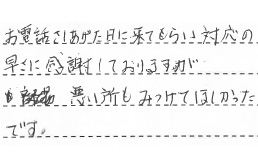 お電話さしあげた日に来てもらい対応の
早さに感謝しておりますが
悪い所もみつけてほしかった
です。